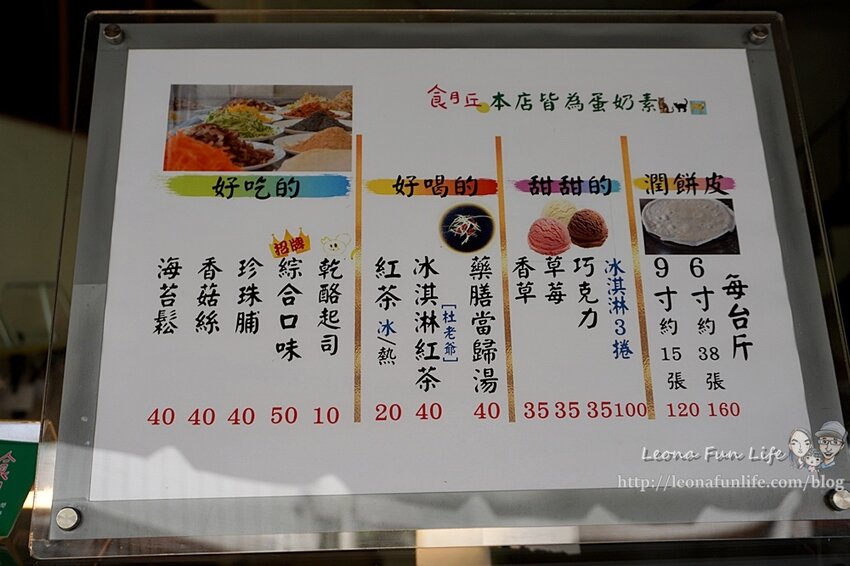 食月丘 本店皆為蛋奶素
好吃的
招牌
乾酪起司 10
綜合口味 50
珍珠脯 40
香菇絲 40
海苔鬆 40
好喝的
藥膳當歸湯 40
冰淇淋紅茶[杜老爺] 40
紅茶 冰/熱 20
甜甜的
冰淇淋3捲 100
巧克力 35
草莓 35
香草 35
潤餅皮
每台斤
6寸約38張 160
9寸約15張 120
Leona Fun Life
http://leonafunlife.com/blog